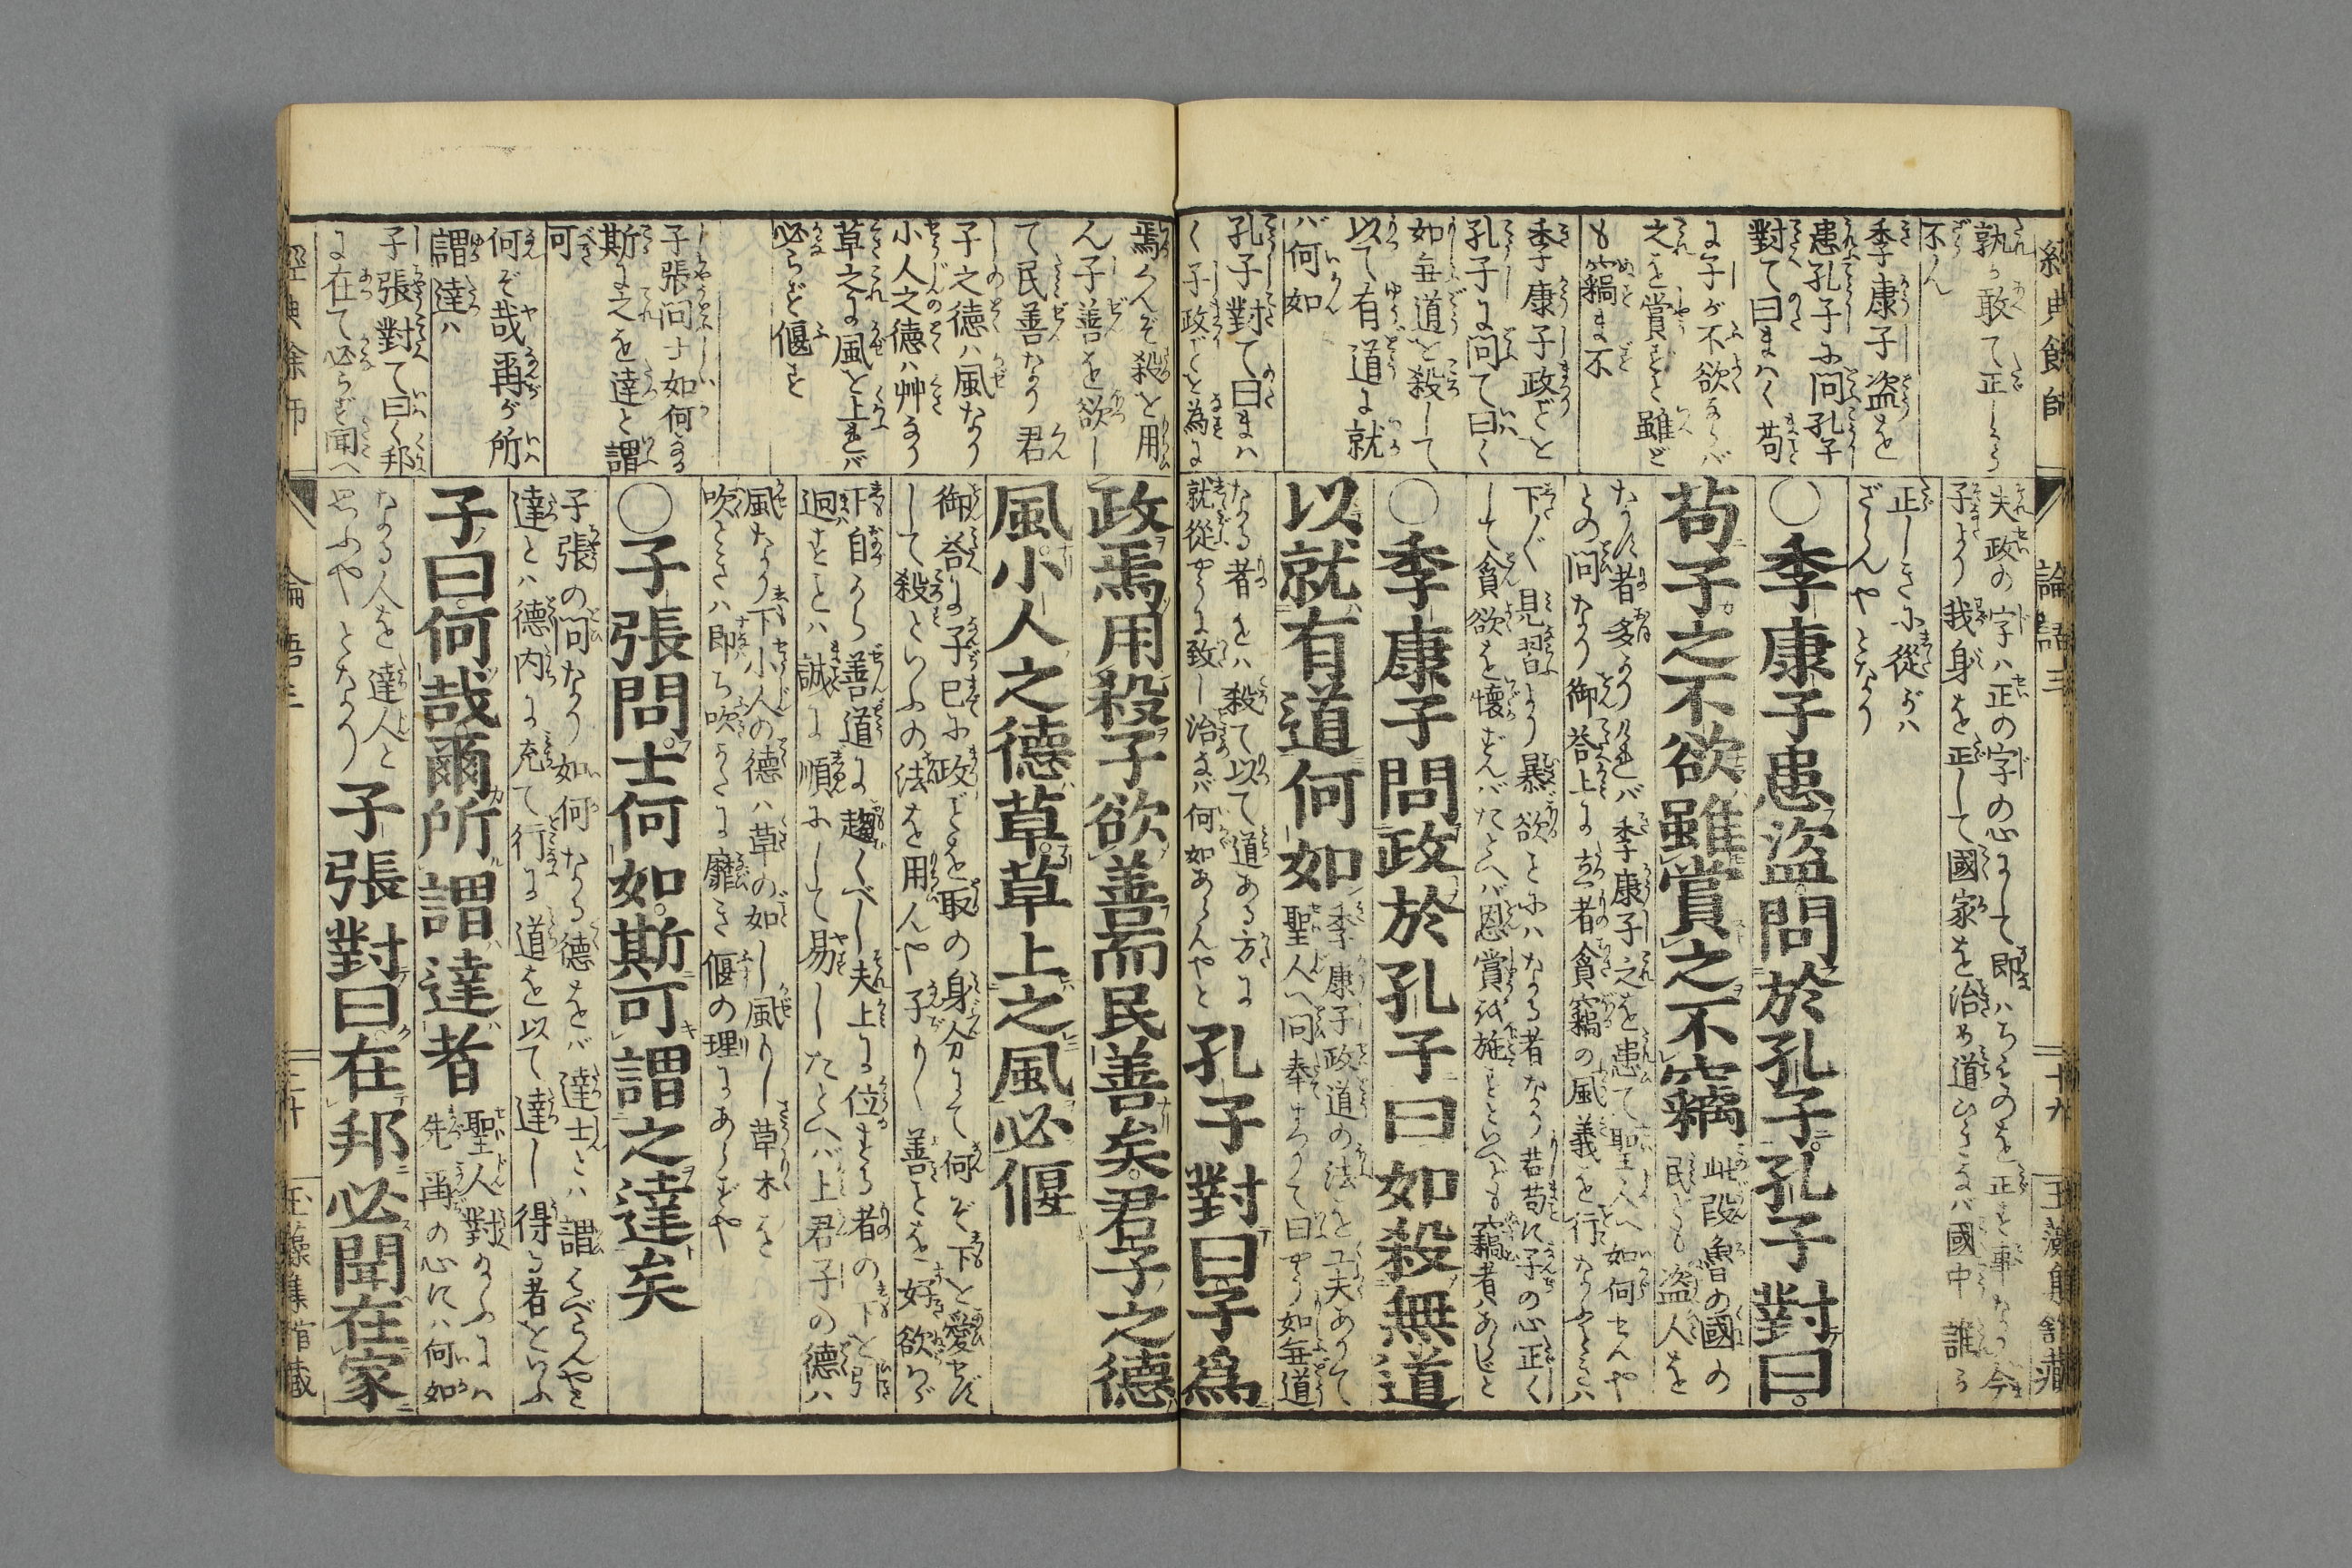 經典餘師
論語三
十九
玉藻舍藏
孰か敢て正しから
不らん
季康子盗を
患孔子に問孔子
對て曰まはく苟
に子が不欲ならバ
之を賞すと雖ど
も竊ま不
季康子政ごとを
孔子に問て曰く
如無道を殺して
以て有道に就
バ何如
孔子對て曰まハ
く子政ごとを為に
夫政の字ハ正の字の心にして即ハちものを正す事なり今
子より我身を正して國家を治め道びきなバ國中誰か
正しきに從がハ
ざらんやとなり
○季康子患盗問於孔子孔子對曰
苟子之不欲雖賞之不竊
此段魯の國の
民ども盗人を
なす者多かりけれバ季康子之を患て聖人へ如何せんや
との問なり御答上に立者貪竊の風義を行なふときハ
下〴〵見習より
して貪欲を懐
○季康子問政於孔子曰如殺無道
以就有道何如
季康子政道の法を工夫ありて
聖人へ問奉まつりて曰やう如無道
なる者をハ殺て以て道ある方に
就從やうに致し治なバ何如あらんやと
孔子對曰子為
焉くんぞ殺を用
ん子善を欲し
て民善なり君
子之徳ハ風なり
小人之徳ハ艸なり
草之に風を上れバ
必らず偃す
子張問士如何なる
斯に之を達と謂
可
何ぞ哉爾が所
謂達ハ
子張對て曰く邦
に在て必らず聞へ
政焉用殺子欲善而民善矣君子之德
風小人之德草草上之風必偃
御答に子已に政ごとを取の身分にて何ぞ下を愛せず
して殺といふの法を用んや子もし善ことを好欲わバ
下自から善道に趨くべし夫上に位する者の下を引
迴すことハ誠に順にして易したとへバ上君子の德ハ
風なり下小人の德ハ草の如し風もし草木を
吹ときハ即ち吹かたに靡き偃の理にあらずや
○子張問士何如斯可謂之達矣
子張の問なり如何なる德をバ達士とハ謂べきやと
達とハ德内に充て行に道を以て達し得る者をいふ
子曰何哉爾所謂達者
聖人對たまふにハ
先爾の心にハ何如
なる人を達人と
思ふやとなり
子張對曰在邦必聞在家
經典餘師
論語三
二十
玉藻集舘藏